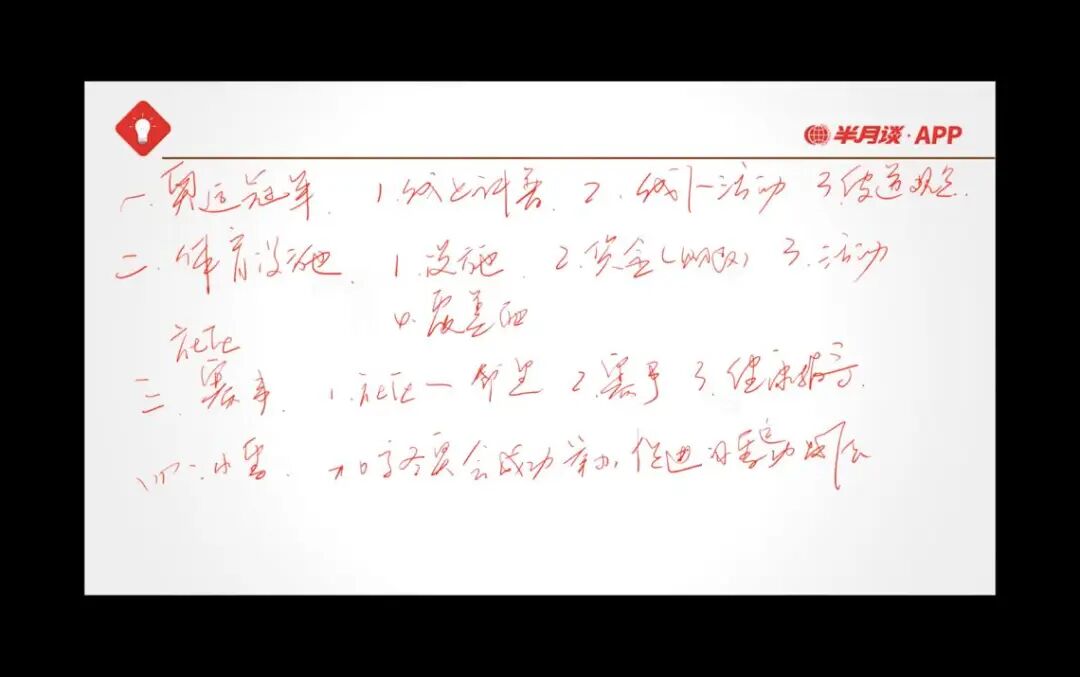 半月谈·APP
一.奥运冠军. 1.线上科普 2.线下活动 3.传递观念.
二.体育设施. 1.设施. 2.资金(财政) 3.活动
4.覆盖面
社区
三.赛事. 1.社区一 2.赛事 3.健康指导.
四:冰雪. 冬奥会成功举办,促进冰雪运动发展